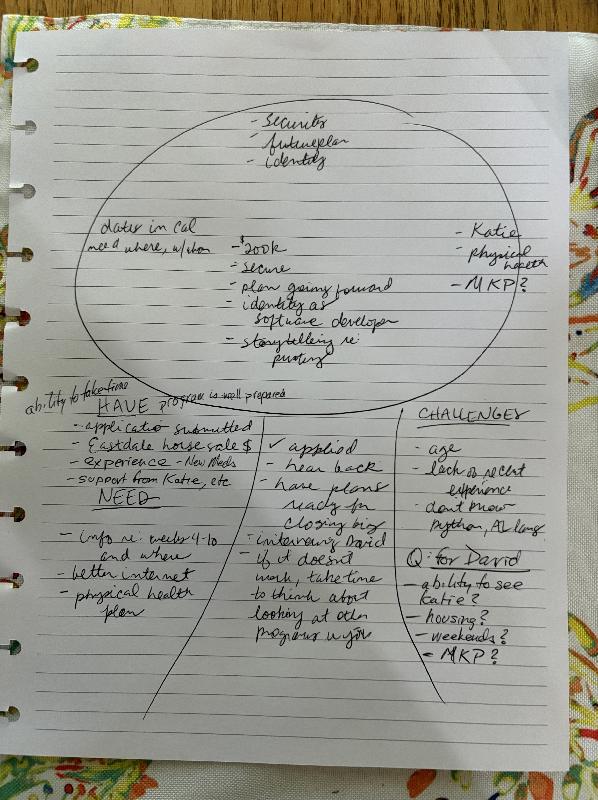 - Security
- future plan
- identity
dates in Cal
need where, w/whom
- $200k
- secure
- plan going forward
- identity as
software developer
- storytelling re:
- Katie
- physical
health
- MKP?
ability to take time
HAVE program is well prepared
- applicatio submitted
- Eastdale house sale $
- experience - New Media
- support from Katie, etc
NEED
- info re: weeks 4-10
and where
- better internet
- physical health
plan
✓ applied
- hear back
- have plans
ready for
closing biz
- interviewing David
- if it doesn't
work, take time
to think about
looking at other
programs
CHALLENGES
- age
- lack of recent
experience
- dont know
python, AI lang
Q: for David
- ability to see
Katie?
- housing?
- weekends?
- MKP?